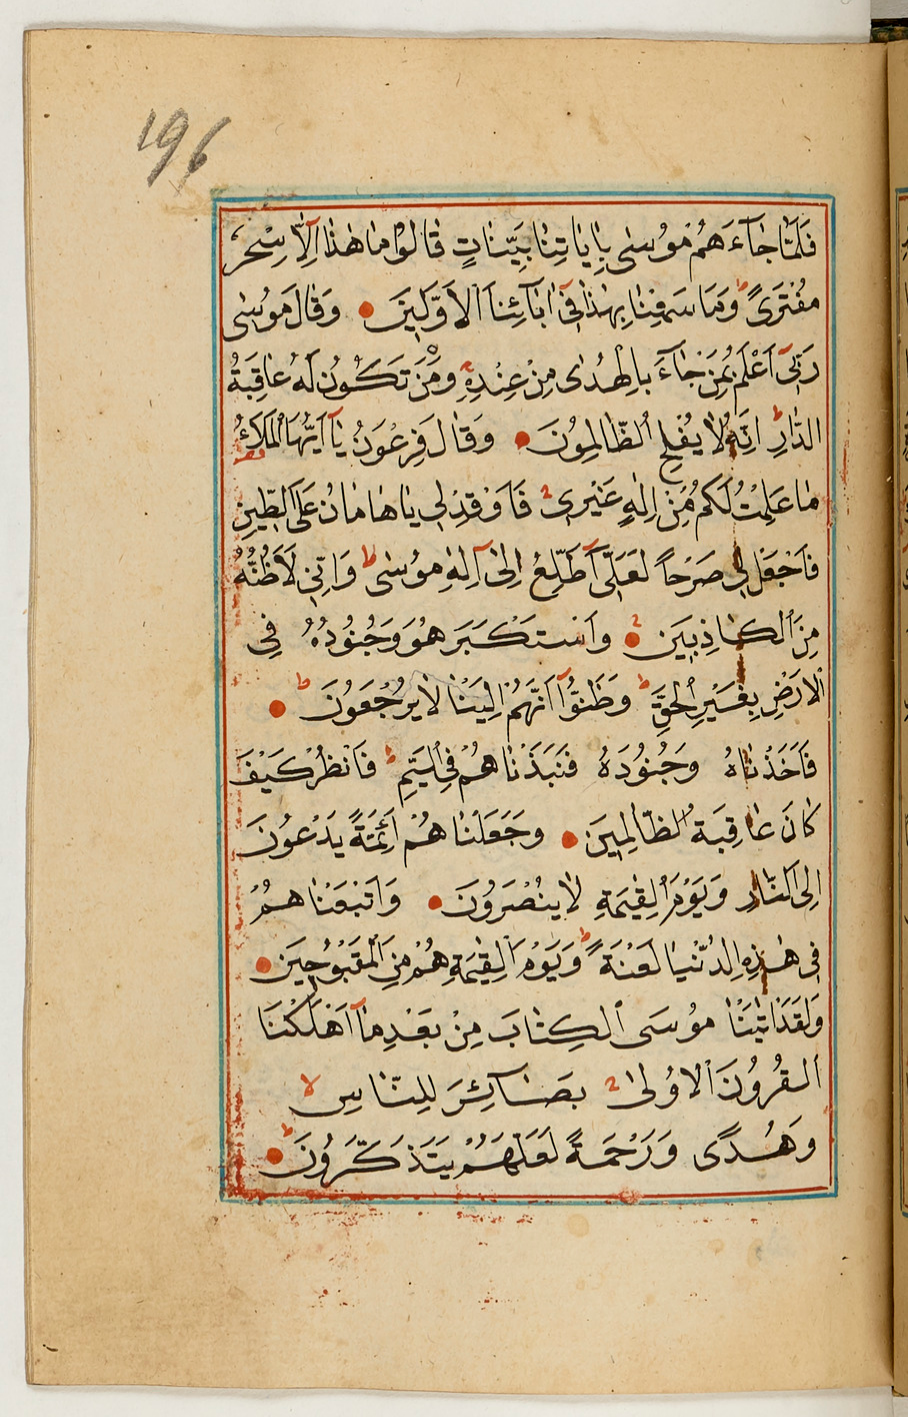 196
فَلَمَّا جَآءَهُمْ مُوسٰى بِاٰيَاتِنَا بَيِّنَاتٍ قَالُوا مَا هٰذَٓا اِلَّا سِحْرٌ
مُفْتَرًىۜ وَمَا سَمِعْنَا بِهٰذَا ف۪ٓى اٰبَآئِنَا الْاَوَّل۪ينَ وَقَالَ مُوسٰى
رَبّ۪ٓى اَعْلَمُ بِمَنْ جَآءَ بِالْهُدٰى مِنْ عِنْدِه۪ وَمَنْ تَكُونُ لَهُ عَاقِبَةُ
الدَّارِ ط اِنَّهُ لَا يُفْلِحُ الظَّالِمُونَ وَقَالَ فِرْعَوْنُ يَآ اَيُّهَا الْمَلَاُ
مَا عَلِمْتُ لَكُمْ مِنْ اِلٰهٍ غَيْر۪ى ج فَاَوْقِدْ ل۪ى يَا هَامَانُ عَلَى الطّ۪ينِ
فَاجْعَلْ ل۪ى صَرْحًا لَعَلّ۪ٓى اَطَّلِعُ اِلٰٓى اِلٰهِ مُوسٰى ط وَاِنّ۪ى لَاَظُنُّهُ
مِنَ الْكَاذِب۪ينَ وَاسْتَكْبَرَ هُوَ وَجُنُودُهُ فِى
الْاَرْضِ بِغَيْرِ الْحَقِّ ط وَظَنُّٓوا اَنَّهُمْ اِلَيْنَا لَا يُرْجَعُونَ ط
فَاَخَذْنَاهُ وَجُنُودَهُ فَنَبَذْنَاهُمْ فِى الْيَمِّ فَانْظُرْ كَيْفَ
كَانَ عَاقِبَةُ الظَّالِم۪ينَ وَجَعَلْنَاهُمْ اَئِمَّةً يَدْعُونَ
اِلَى النَّارِ وَيَوْمَ الْقِيٰمَةِ لَا يُنْصَرُونَ وَاَتْبَعْنَاهُمْ
ف۪ى هٰذِهِ الدُّنْيَا لَعْنَةً ط وَيَوْمَ الْقِيٰمَةِ هُمْ مِنَ الْمَقْبُوح۪ينَ
وَلَقَدْ اٰتَيْنَا مُوسَى الْكِتَابَ مِنْ بَعْدِ مَآ اَهْلَكْنَا
الْقُرُونَ الْاُولٰى بَصَآئِرَ لِلنَّاسِ لا
وَهُدًى وَرَحْمَةً لَعَلَّهُمْ يَتَذَكَّرُونَ ط